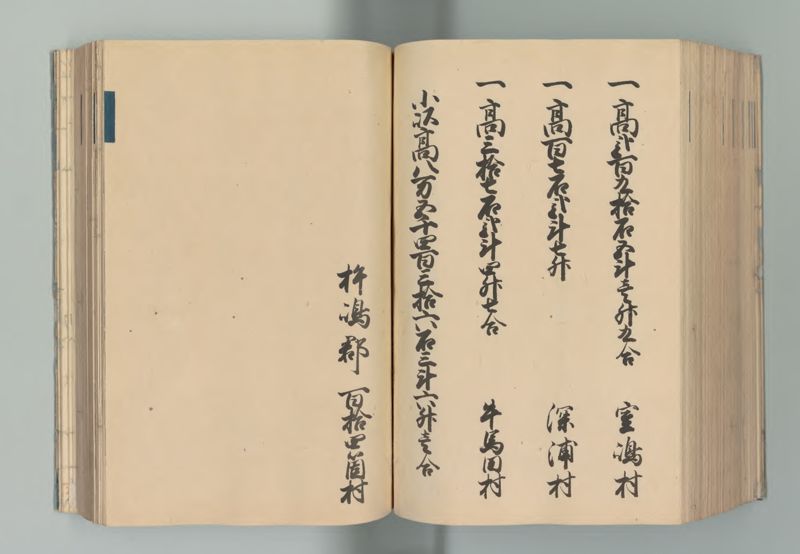 一高弐百九拾石五斗壱升九合 室嶋村
一高百七石弐斗七升 深浦村
一高三拾七石弐斗四升七合 牛馬田村
小以高八万五千四百三拾六石三斗六升壱合
杵嶋郡 百拾四箇村